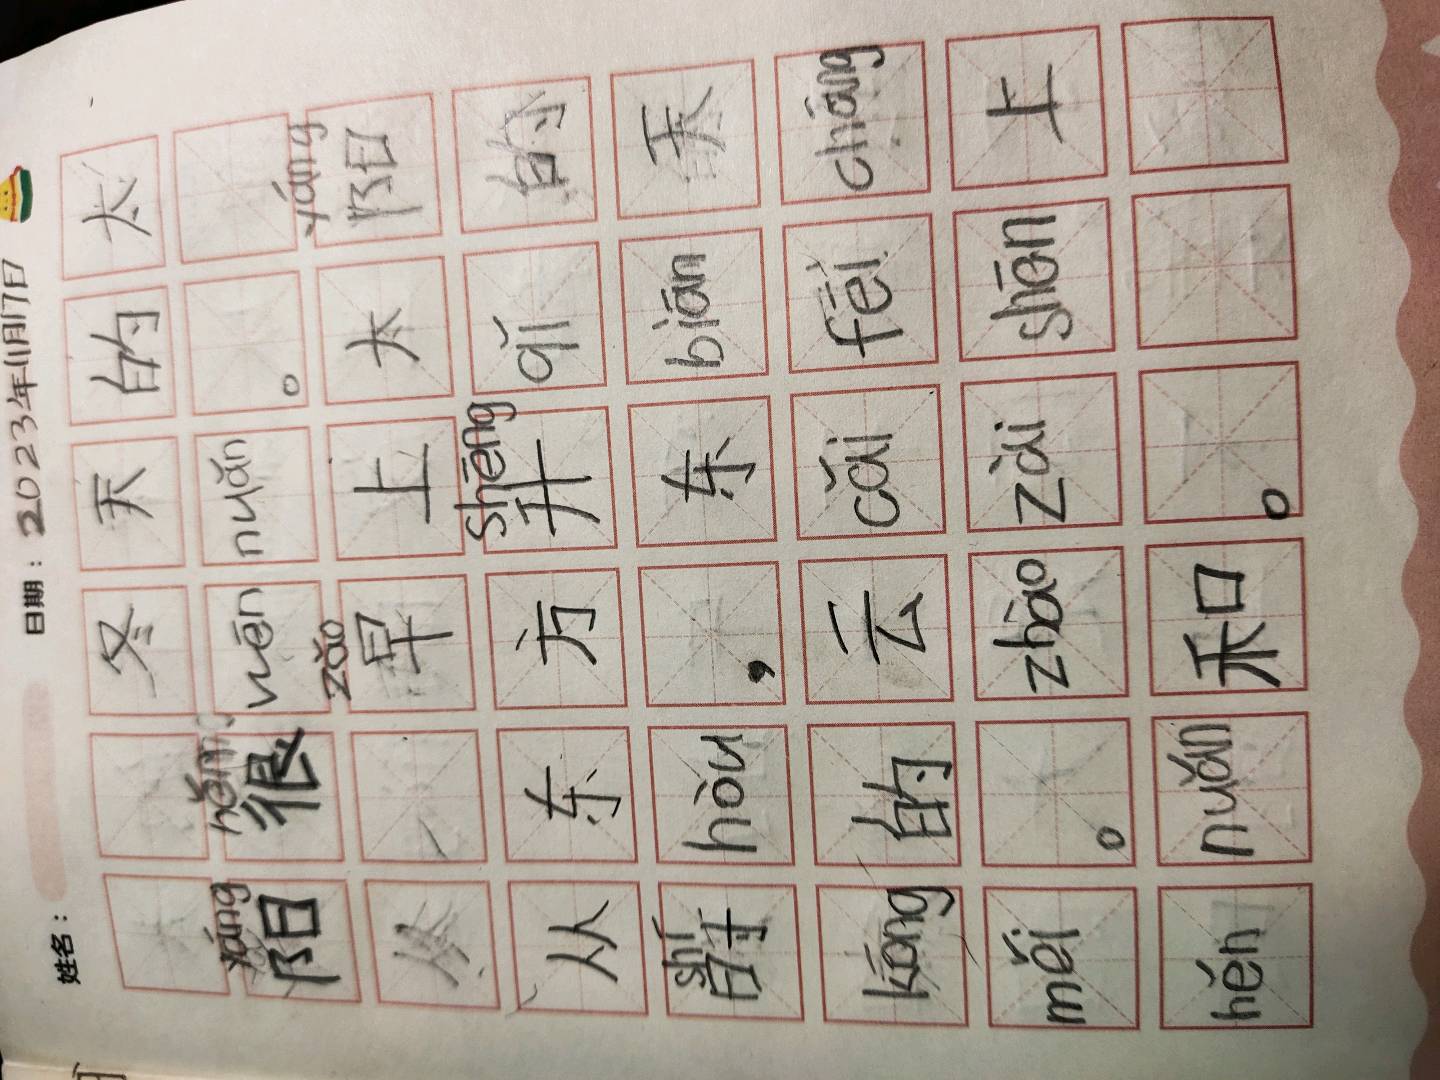 姓名： 日期：2023年11月17日
冬天的太
yáng hěn
阳很wēnnuǎn。
zǎo yáng
早上太阳
shēng
从东方升qǐ的
shí
时hòu，东biān天
kōng的云cǎifēicháng
měi。zhàozàishēn上
hěnnuǎn和。